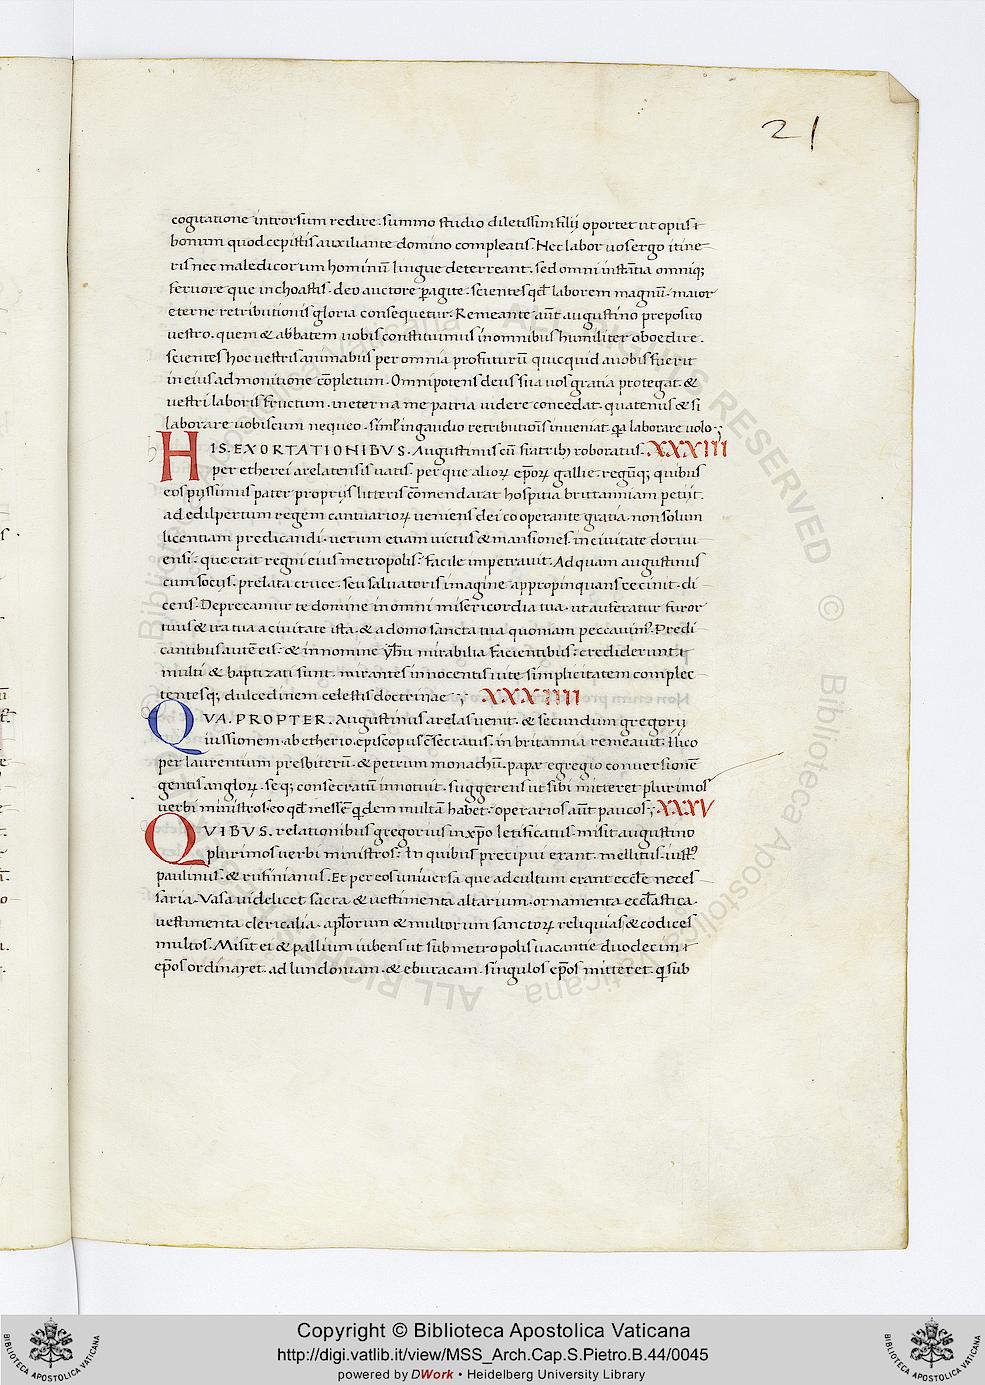 21
cogitatione introrsum redire. summo studio diletissim filij oportet ut opus
bonum quod cepistis auxiliante domino compleatis. Nec labor vos ergo itine-
ris nec maledicorum hominũ lingue deterreant. sed omni instãtia omniq;
fervore que inchoastis. deo auctore ꝑagite. scientes qđ laborem magnũ. maior
eterne retributionis gloria consequetur. Remeante aũt augustino preposito
vestro. quem & abbatem vobis constituimus in omnibus humiliter oboedire.
scientes hoc vestris animabus per omnia profuturũ quicquid avobis fuerit
in eius admonitione cõpletum. Omnipotens deus sua vos gratia protegat. &
vestri laboris fructum. in eterna me patria videre concedat. quatenus & si
laborare vobiscum nequeo. simľ in gaudio retributiõis inveniar. qa laborare volo.;
HIS. EXORTATIONIBVS. Augustinus cũ fratribꝫ roboratus. XXXIII
per etherei arelatensis vatis. per que alioꝝ ep̃oꝝ gallie. regũq; quibus
eos pijssimus pater proprijs litteris cõmendarat hospitia brittanniam petijt.
ad edilpertum regem cantuarioꝝ veniens dei cooperante gratia. non solum
licentiam predicandi. verum etiam victus & mansiones. in civitate dorivi
ensi. que erat regni eius metropolis. facile impetravit. Ad quam augustinus
cum socijs. prelata cruce. seu salvatoris imagine appropinquans cecinit. di
cens. Deprecamur te domine in omni misericordia tua. ut auferatur furor
tuus & ira tua a civitate ista. & a domo sancta tua quoniam peccavim⁹. Predi
cantibus autẽ eis. & in nomine yh̃u mirabilia facientibus. crediderunt
multi & baptizati sunt. mirantes innocentis vite simplicitatem complec
tentesq; dulcedinem celestis doctrinae .; XXXIIII
QVA. PROPTER. Augustinus arelas venit. & secundum gregorij
iussionem ab etherio episcopus cõsecratus. in britannia remeavit. Hico
per laurentium presbiterũ. & petrum monachũ. papæ egregio conversionẽ
gentis angloꝝ. seq; consecratũ innotuit. suggerens ut sibi mitteret plurimos
verbi ministros. eo qđ messẽ qdem multã habet. operarios aũt paucos.; XXXV
QVIBVS. relationibus gregorius in xp̃o letificatus. misit augustino
plurimos verbi ministros. In quibus precipui erant. mellitus. iust⁹
paulinus. & rufinianus. Et per eos universa que ad cultum erant eccłe neces
saria. Vasa videlicet sacra & vestimenta altarum. ornamenta eccłastica.
vestimenta clericalia. apłorum & multorum sanctoꝝ reliquias & codices
multos. Misit et & pallium iubens ut sub metropolis vacantie duodecim
ep̃os ordinaret. ad lundoniam. & eburacam. singulos ep̃os mitteret. q sub
© Biblioteca Apostolica Vaticana ALL RIGHTS RESERVED
© Biblioteca Apostolica Vaticana ALL RIGHTS RESERVED
Copyright © Biblioteca Apostolica Vaticana
http://digi.vatlib.it/view/MSS_Arch.Cap.S.Pietro.B.44/0045
powered by DWork • Heidelberg University Library
BIBLIOTECA APOSTOLICA VATICANA
BIBLIOTECA APOSTOLICA VATICANA